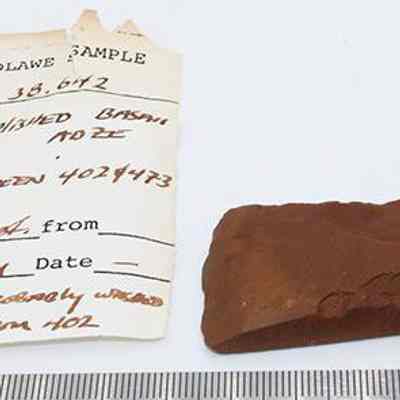 OLAWE SAMPLE
38.642
LISHED BASAL
ADZE
EEN 402 & 473
from
Date —
robably washed
402